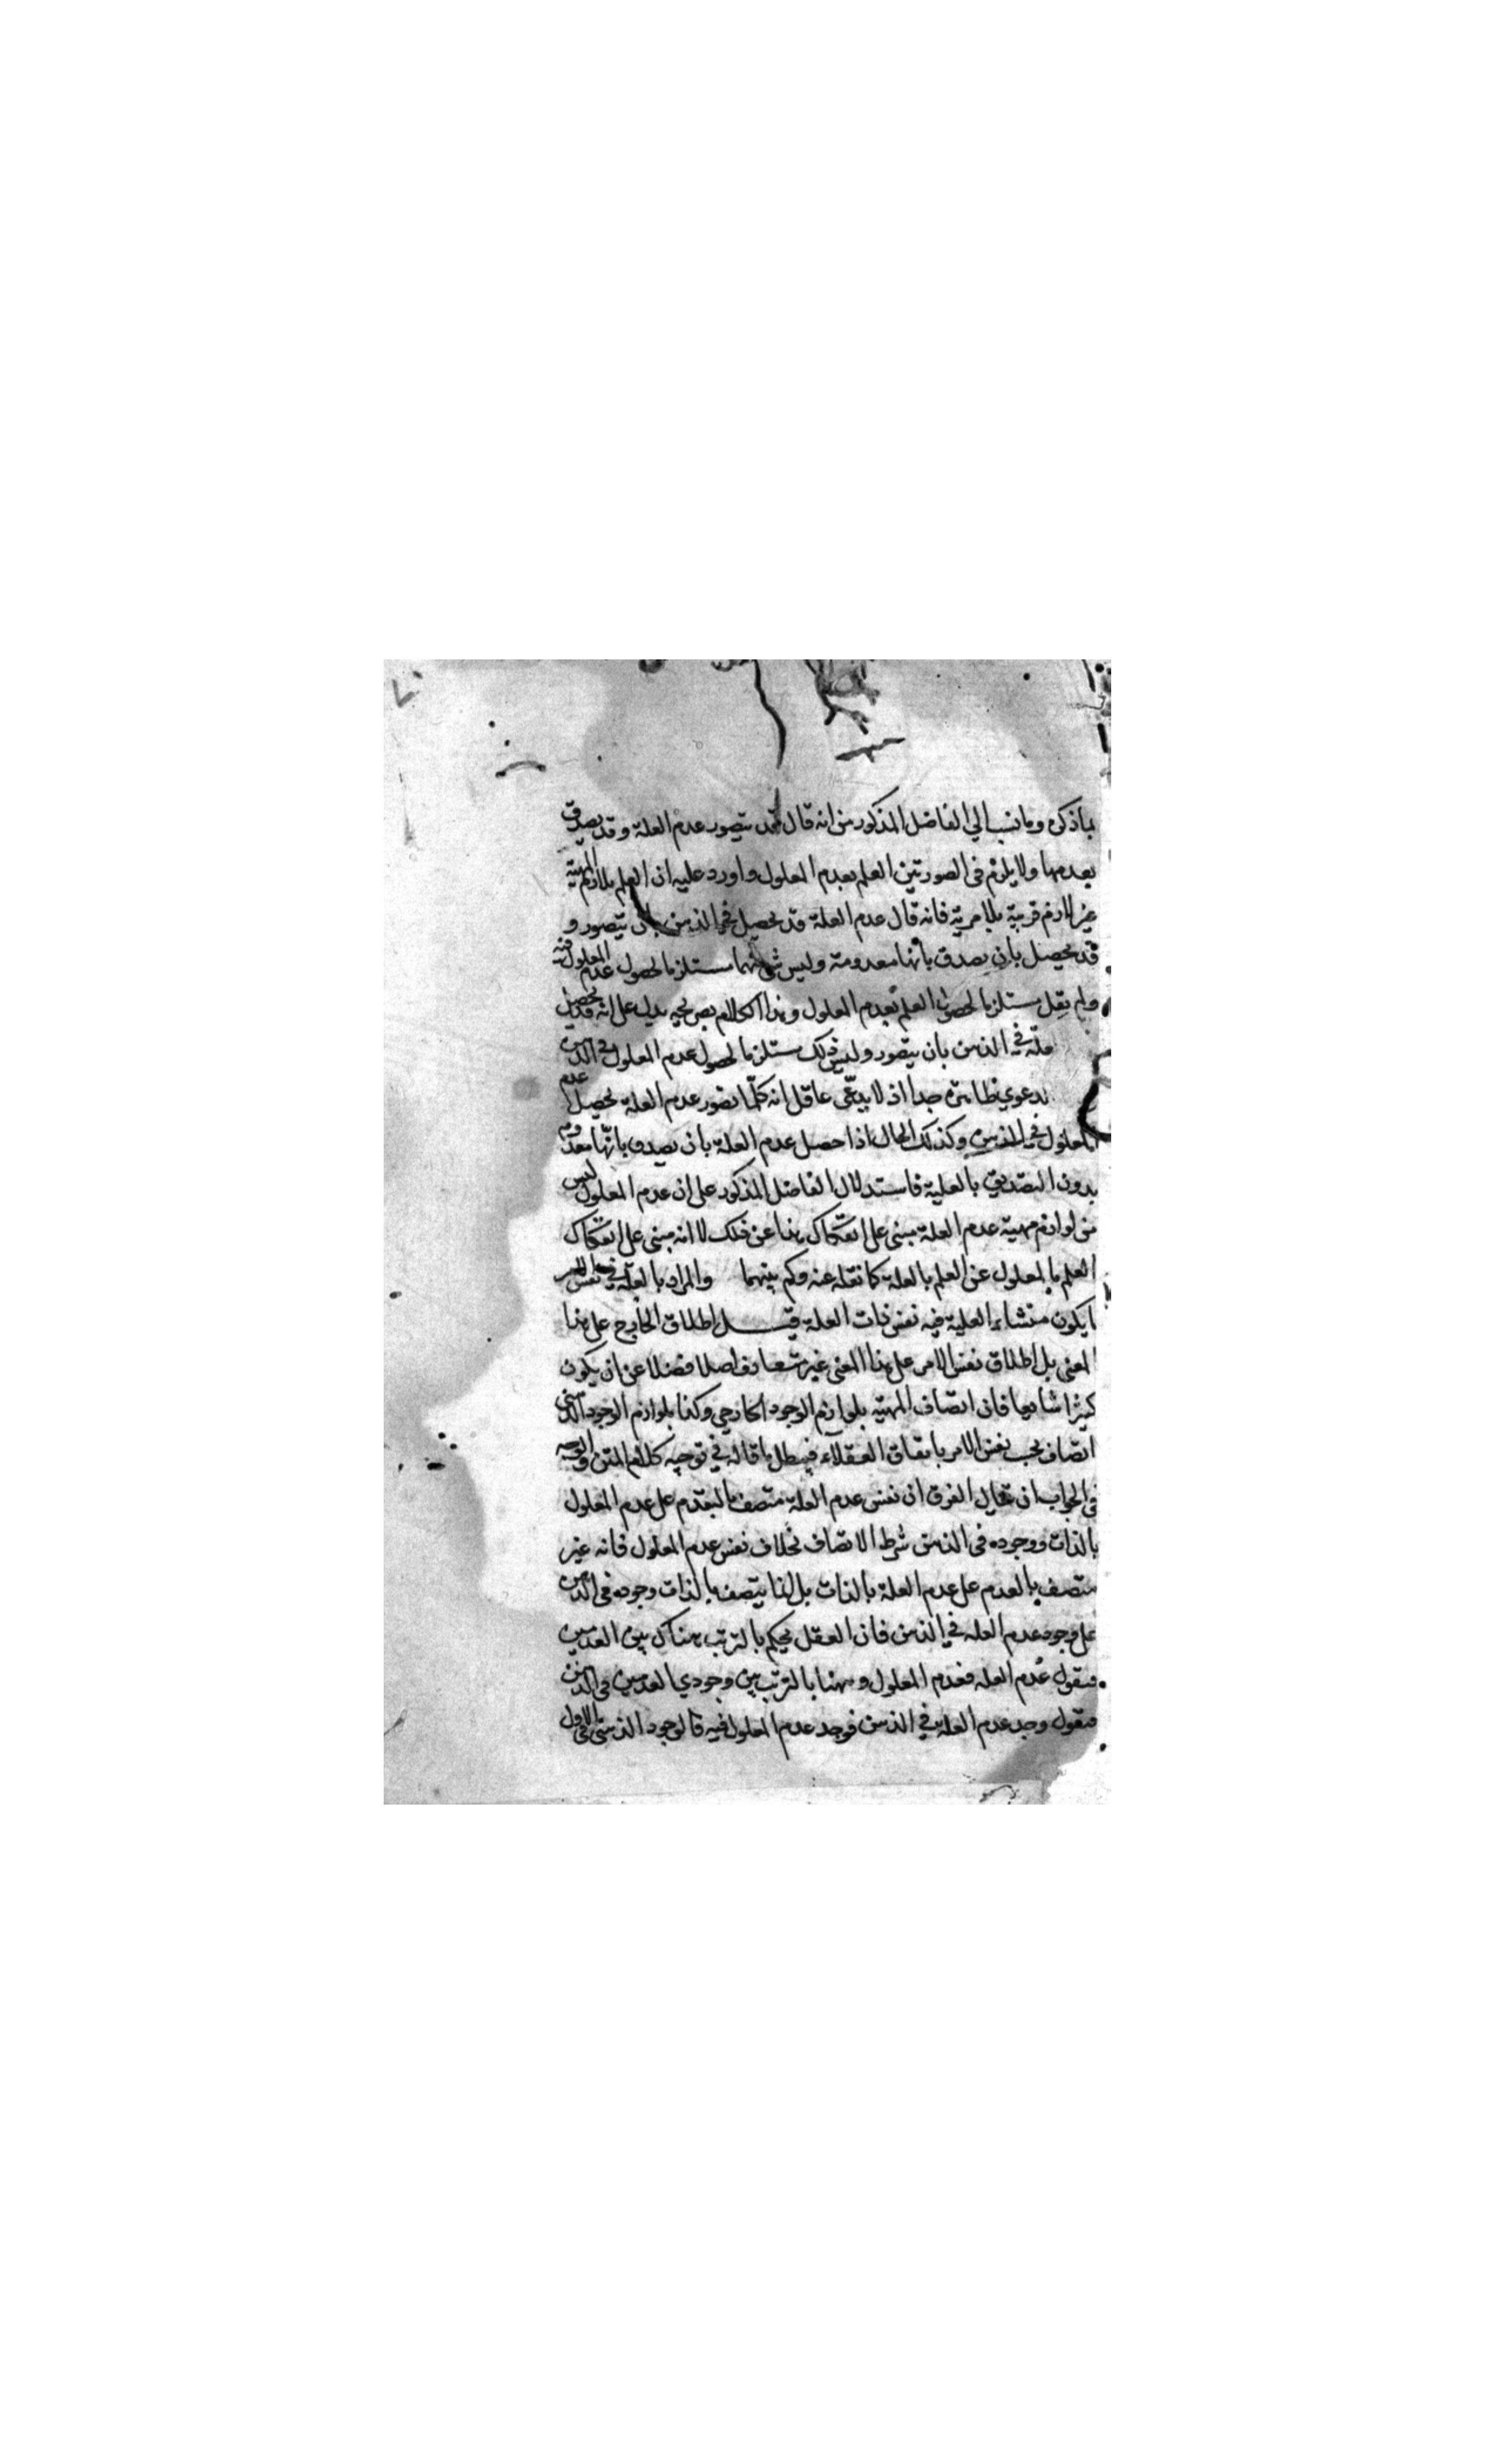 بما ذكره وما نسب الي الفاضل المذكور من انه قال قد يتصور عدم العلة وقد يصدق
بعدمها ولا يلزم في الصورتين العلم بعدم المعلول واورد عليه ان العلم بلازم المهية
غير لازم فرية بلا مرية فانه قال عدم العلة قد يحصل في الذهن بان يتصور و
قد يحصل بان يصدق بانها معدومة وليس شئ منهما مستلزما لحصول عدم المعلول فيه
ولم يقل مستلزما لحصول العلم بعدم المعلول وهذا الكلام بصريحه يدل على انه قد يحصل
في الذهن بان يتصور وليس ذلك مستلزما لحصول عدم المعلول في الذهن
دعوي ظاهرة جدا اذ لا يدعي عاقل انه كلما تصور عدم العلة يحصل عدم
المعلول في الذهن وكذلك الحال اذا حصل عدم العلة بان يصدق بانها معدوم
بدون التصديق بالعلية فاستدلال الفاضل المذكور على ان عدم المعلول ليس
من لوازم مهية عدم العلة مبني على انفكاك هذا عن ذلك لا انه مبني على انفكاك
العلم بالمعلول عن العلم بالعلة كما نقله عنه وكم بينهما والمراد بالعلة في نفس الامر
ما يكون منشاء العلية فيه نفس ذات العلة قيل اطلاق الخارج على هذا
المعني بل اطلاق نفس الامر على هذا المعني غير متعارف اصلا فضلا عن ان يكون
كثيرا شايعا فان اتصاف المهية بلوازم الوجود الخارجي وكذا بلوازم الوجود الذهني
اتصاف بحسب نفس الامر باتفاق العقلاء فبطل ما قاله في توجيه كلام المتن والوجه
في الجواب ان يقال الفرق ان نفس عدم العلة متصف بالتقدم على عدم المعلول
بالذات ووجوده في الذهن شرط الاتصاف بخلاف نفس عدم المعلول فانه غير
متصف بالعدم على عدم العلة بالذات بل انما يتصف بالذات وجوده في الذهن
على وجود عدم العلة في الذهن فان العقل يحكم بالترتب هناك بين العدمين
فيقول عدم العلة فعدم المعلول وههنا بالترتب بين وجودي العدمين في الذهن
فيقول وجد عدم العلة في الذهن فوجد عدم المعلول فيه فالوجود الذهني في الاول